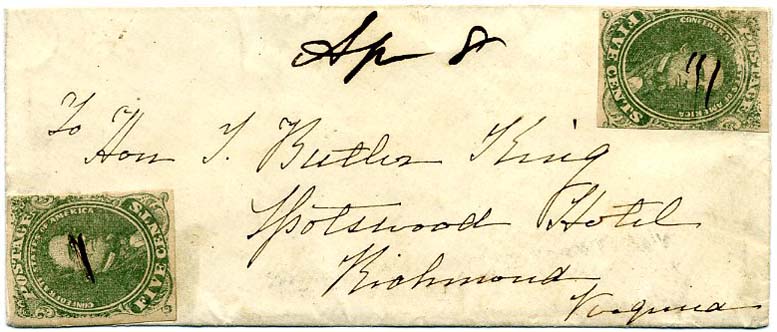 Ap 8
To
Hon T. Butler King
Spotswood Hotel
Richmond
Virginia
POSTAGE
CONFEDERATE STATES OF AMERICA
FIVE CENTS
POSTAGE
CONFEDERATE STATES OF AMERICA
FIVE CENTS